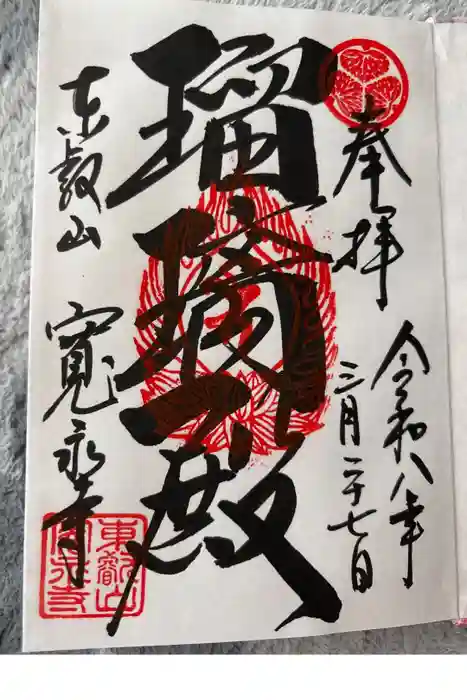 奉拝
令和八年
三月二十七日
瑠璃殿
東叡山
寛永寺
東叡山
寛永寺